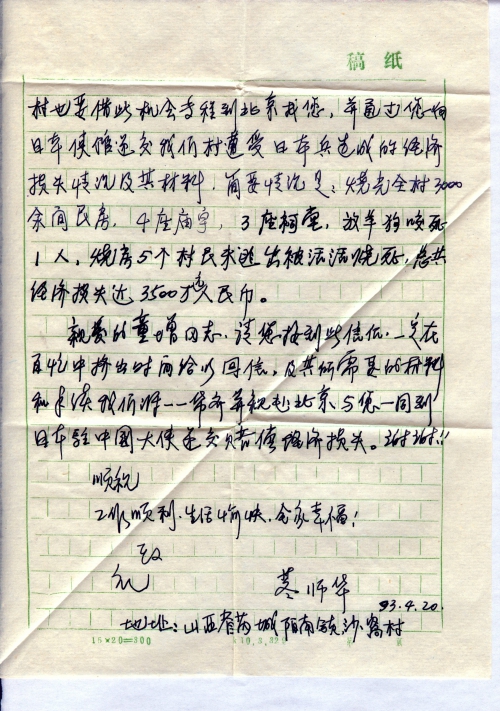 稿 纸
村也要借此机会专程到北京找您，并通过您向
日本使馆递交我们村遭受日本兵造成的经济
损失情况及其材料，简要情况是：烧光全村3000
余间民房，4座庙宇，3座祠堂，放羊狗咬死
1人，烧房5个村民未逃出被活活烧死，总共
经济损失近3500万元人民币。
亲爱的童增同志，请您接到此信后，一定在
百忙中挤出时间给以回信，及其所需要的材料
和手续我们将一一带齐并亲赴北京与您一同到
日本驻中国大使递交赔偿经济损失。谢谢!!
顺祝
工作顺利，生活愉快，全家幸福！
致
礼
师华
93.4.20.
地址：山西省芮城阳南镇沙窝村
15×20=300